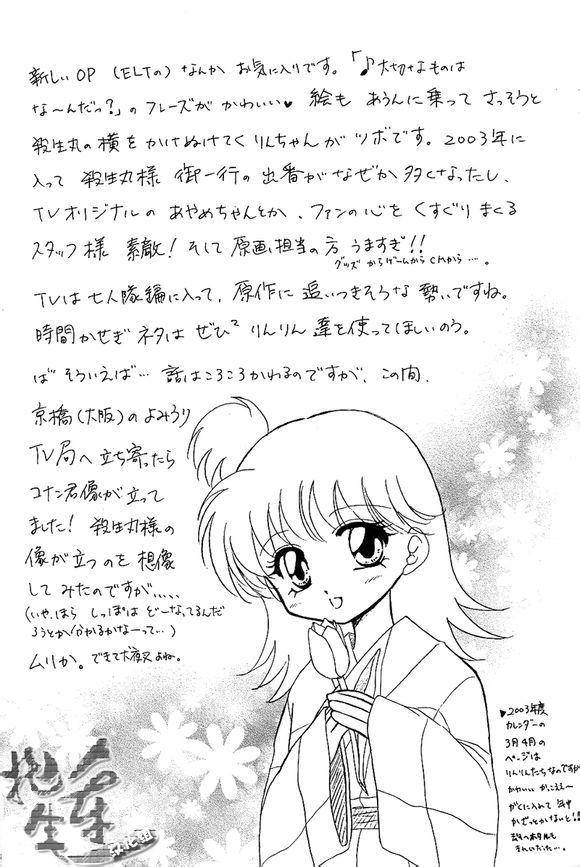 新しいOP (ELTの) なんか お気に入りです。「♪大切なものは
な〜んだっ?」のフレーズが かわいい♥ 絵も あうんに乗って さっそうと
殺生丸の横を かけぬけてく りんちゃんが ツボです。2003年に
入って 殺生丸様 御一行の 出番が なぜか 多くなったし、
TVオリジナルの あやめちゃんとか、ファンの心を くすぐりまくる
スタッフ様 素敵! そして 原画担当の方 うますぎ!!
グッズ からゲームから CMから…。
TVは七人隊編に入って、原作に 追いつきそうな 勢いですね。
時間かせぎ ネタは ぜひ² りんりん達を使ってほしいのう。
ばそういえば… 話はころころかわるのですが、この間、
京橋(大阪)のよみうり
TV局へ立ち寄ったら
コナン君像が立って
ました! 殺生丸様の
像が立つのを 想像
してみたのですが.....
(いや、ほら しっぽは どーなってるんだ
ろうとか
かなーって…)
ムリか。できて犬夜叉よね。
▶2003年度
カレンダーの
3月4月の
ページは
りんりんたちなのですが
かわいい かっこえぇ〜
がくに入れて 年中
かざっとかないと!!